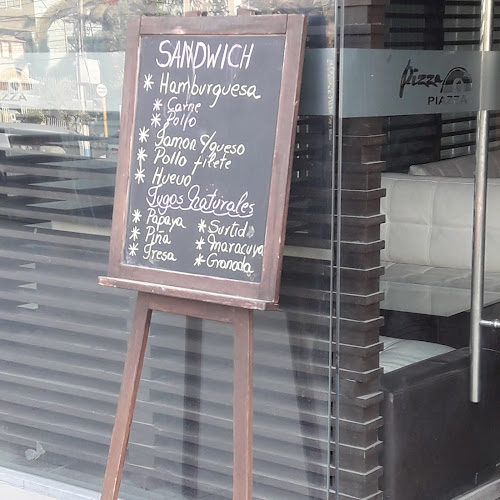 SANDWICH
* Hamburguesa
* Carne
* Pollo
* Jamon c/queso
* Pollo filete
* Huevo
Jugos Naturales
* Papaya
* Piña
* Fresa
* Surtid
* Maracuya
* Granada
pizza
PIAZZA
ZZA